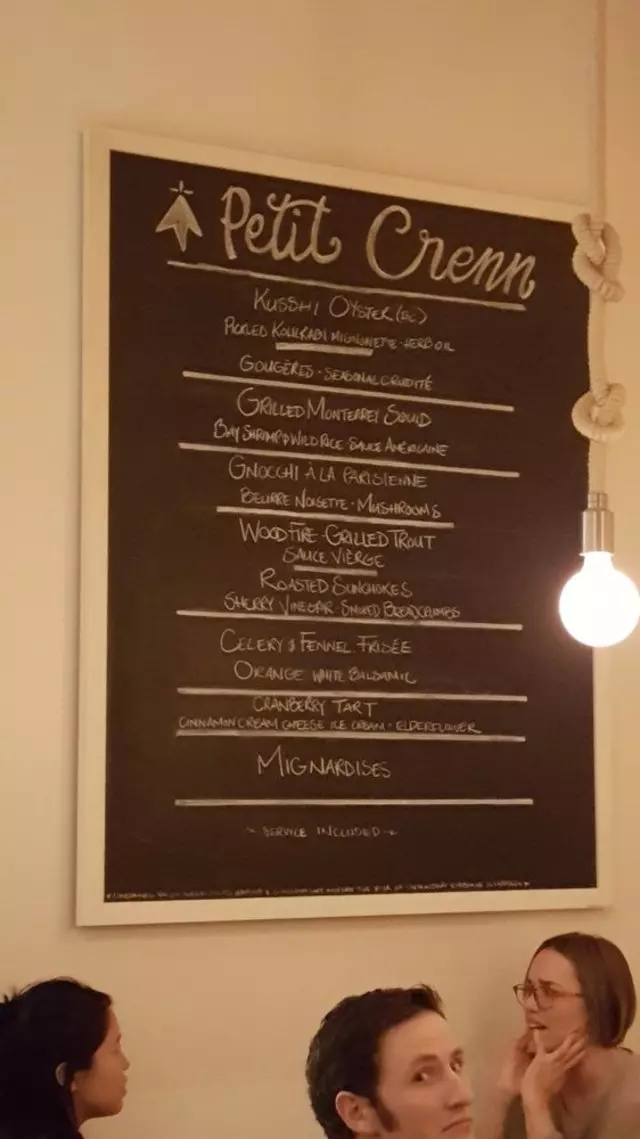 Petit Crenn
KUSSHI OYSTER (BC)
PICKLED KOHLRABI MIGNONETTE · HERB OIL
GOUGÈRES · SEASONAL CRUDITÉ
GRILLED MONTEREY SQUID
BAY SHRIMP & WILD RICE · SAUCE AMÉRICAINE
GNOCCHI À LA PARISIENNE
BEURRE NOISETTE · MUSHROOMS
WOOD FIRE · GRILLED TROUT
SAUCE VIERGE
ROASTED SUNCHOKES
SHERRY VINEGAR · SMOKED BREADCRUMBS
CELERY & FENNEL FRISÉE
ORANGE WHITE BALSAMIC
CRANBERRY TART
CINNAMON CREAM CHEESE ICE CREAM · ELDERFLOWER
MIGNARDISES
~ SERVICE INCLUDED ~